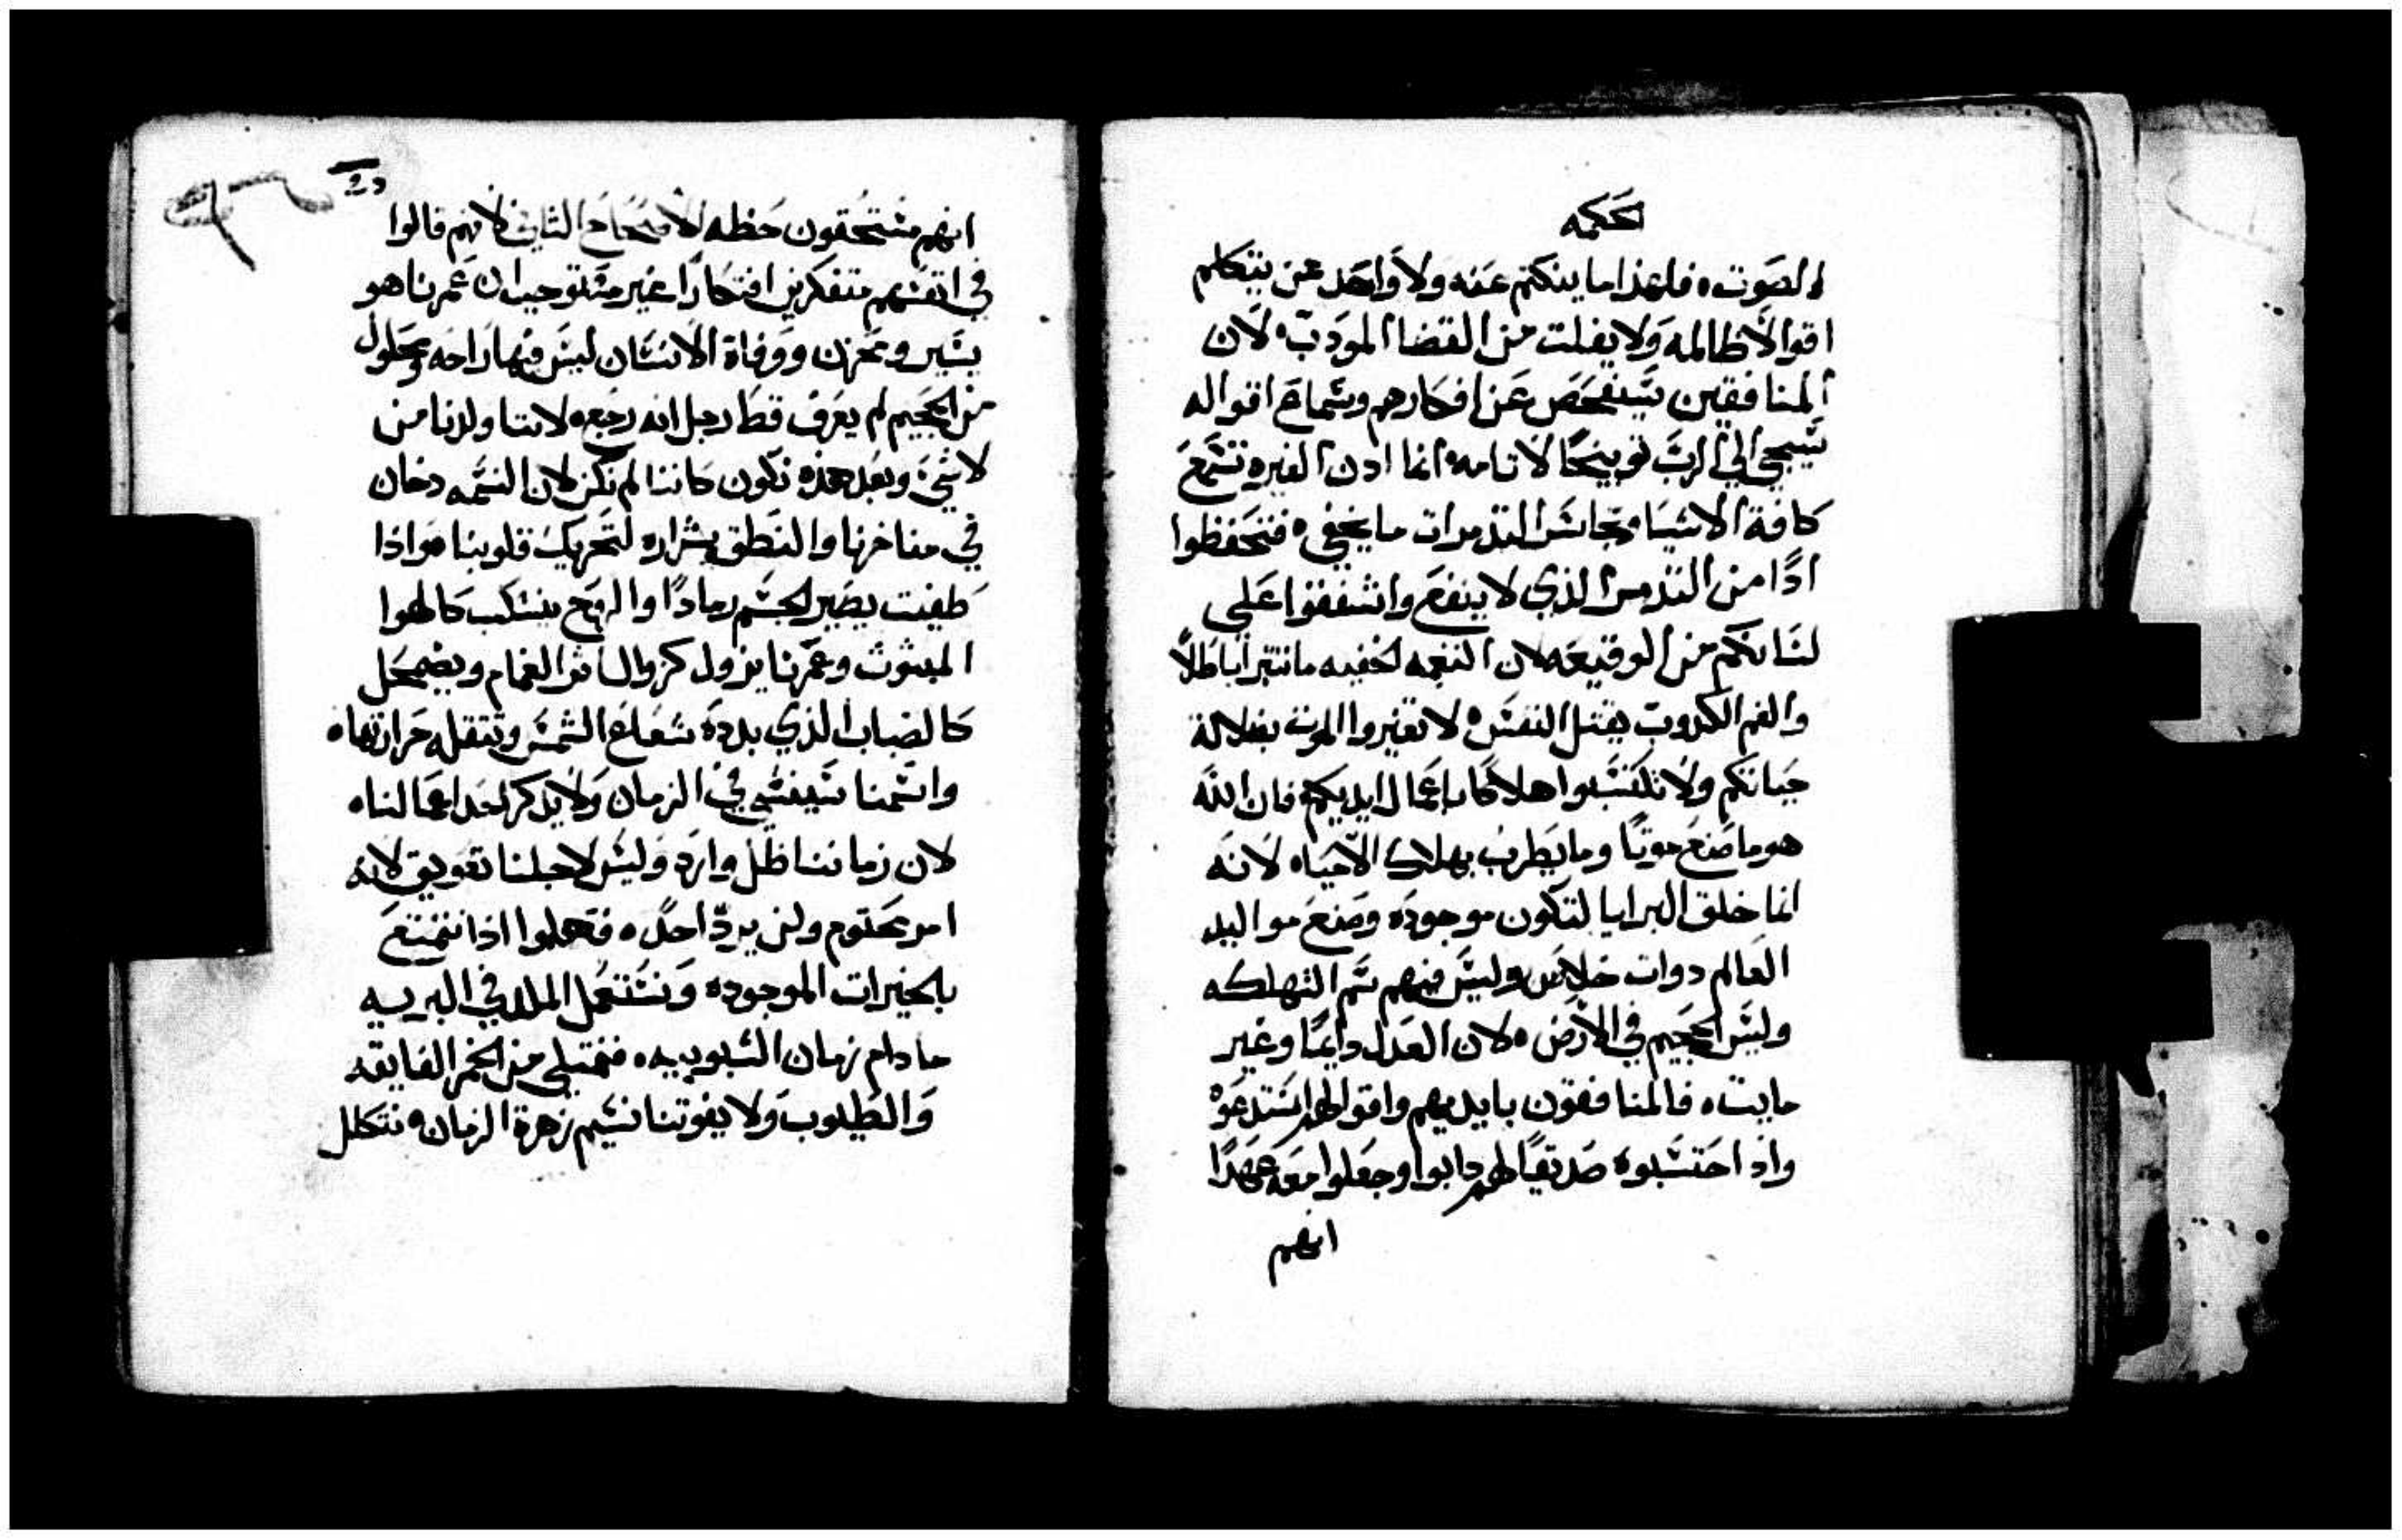 حكمه
الصوت ٥ فلهذا ما ينكتم عنه ولا واحد ممن يتكلم
اقوالا ظالمه ولا يفلت من القضا المودب ٥ لان
المنافقين سيفحص عن افكارهم وسماع اقواله
سيجي الي الرب توبيخًا لاثامه ٥ انما ادن الغيره تسمع
كافة الاشيا وتجاسر التذمرات ما يخفي ٥ فتحفظوا
اذًا من التذمر الذي لا ينفع واشفقوا على
لسانكم من الوقيعه لان النغمه الخفيه ما تنبرا باطلاً
والفم الكدوب يقتل النفس ٥ لا تغيروا الموت بضلالة
حياتكم ولا تكتسبوا هلاكا باعمال ايديكم فان الله
هو ما صنع موتًا وما يطرب بهلاك الاحياء لانه
انما خلق البرايا لتكون موجوده وصنع مواليد
العالم دوات خلاص وليس فيهم سم التهلكه
وليس الجحيم في الارض ٥ لان العدل دايمًا وغير
مايت ٥ فالمنافقون بايديهم واقوالهم استدعوه
واذ احتسبوه صديقًا لهم دابوا وجعلوا معه عهدًا
انهم
انهم مستحقون حظه الاصحاح الثاني لانهم قالوا
في انفسهم متفكرين افتكارًا غير مستوجب ان عمرنا هو
يسير ومحزن ووفاة الانسان ليس فيها راحه ومحلول
من الجحيم لم يعرف قط رجل انه رجع ٥ لاننا ولدنا من
لا شيء وبعد هذه نكون كاننا لم نكن لان النسمه دخان
في مناخرنا والنطق شراره لتحريك قلوبنا ٥ واذا
طفيت يصير الجسم رمادًا والروح ينسكب كالهوا
المبثوث وعمرنا يزول كزوال اثر الغمام ويضمحل
كالضباب الذي بدده شعاع الشمس وتثقله حرارتها ٥
واسمنا سينسي في الزمان ولا يذكر احد اعمالنا ٥
لان زماننا ظل وارد وليس لاجلنا تعويق لانه
امر محتوم ولن يردّ احد ٥ فهلموا اذا نتمتع
بالخيرات الموجوده ونستعمل الملاذ في البريه
ما دام زمان الشبوبيه ٥ فنمتلي من الخمر الفايقه
والطيوب ولا يفوتنا نسيم زهرة الزمان ٥ نتكلل